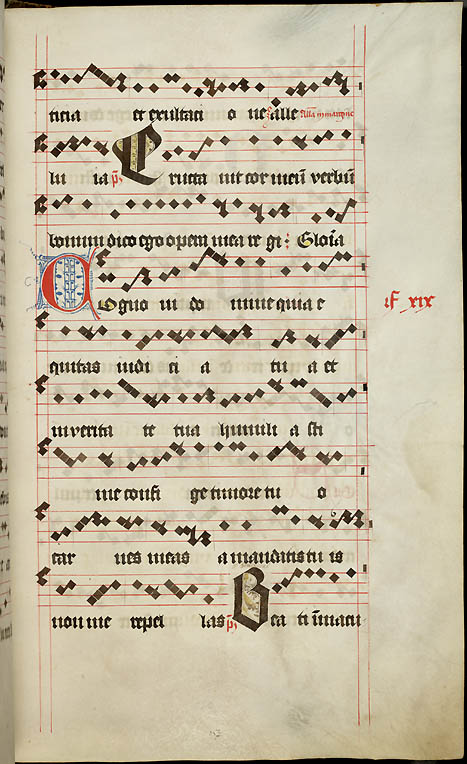 ticia et exultati o ne alle Alla in margine
lu ia p̄s Eructa uit cor meū verbū
bonum dico ego opera mea re gi : Gloīa
Cogno ui do mine quia e
f xix
quitas iudi ci a tu a et
in verita te tua humili a sti
me confi ge timore tu o
car nes meas a mandatis tu is
non me repel las p̄s Bea ti īmacu